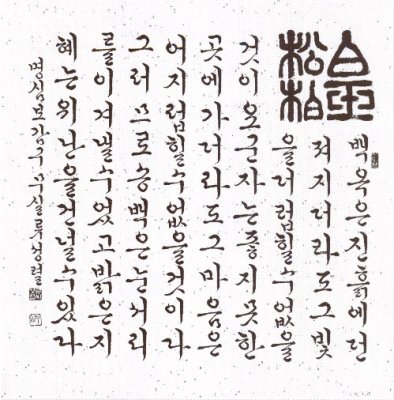 白玉
松柏
백옥은진흙에던
져지더라도그빛
을더럽힐수없을
것이요군자는좋지못한
곳에가더라도그마음은
어지럽힐수없을것이다
그러므로송백은눈서리
를이겨낼수있고밝은지
혜는위난을건널수있다
명심보감구 류성렬